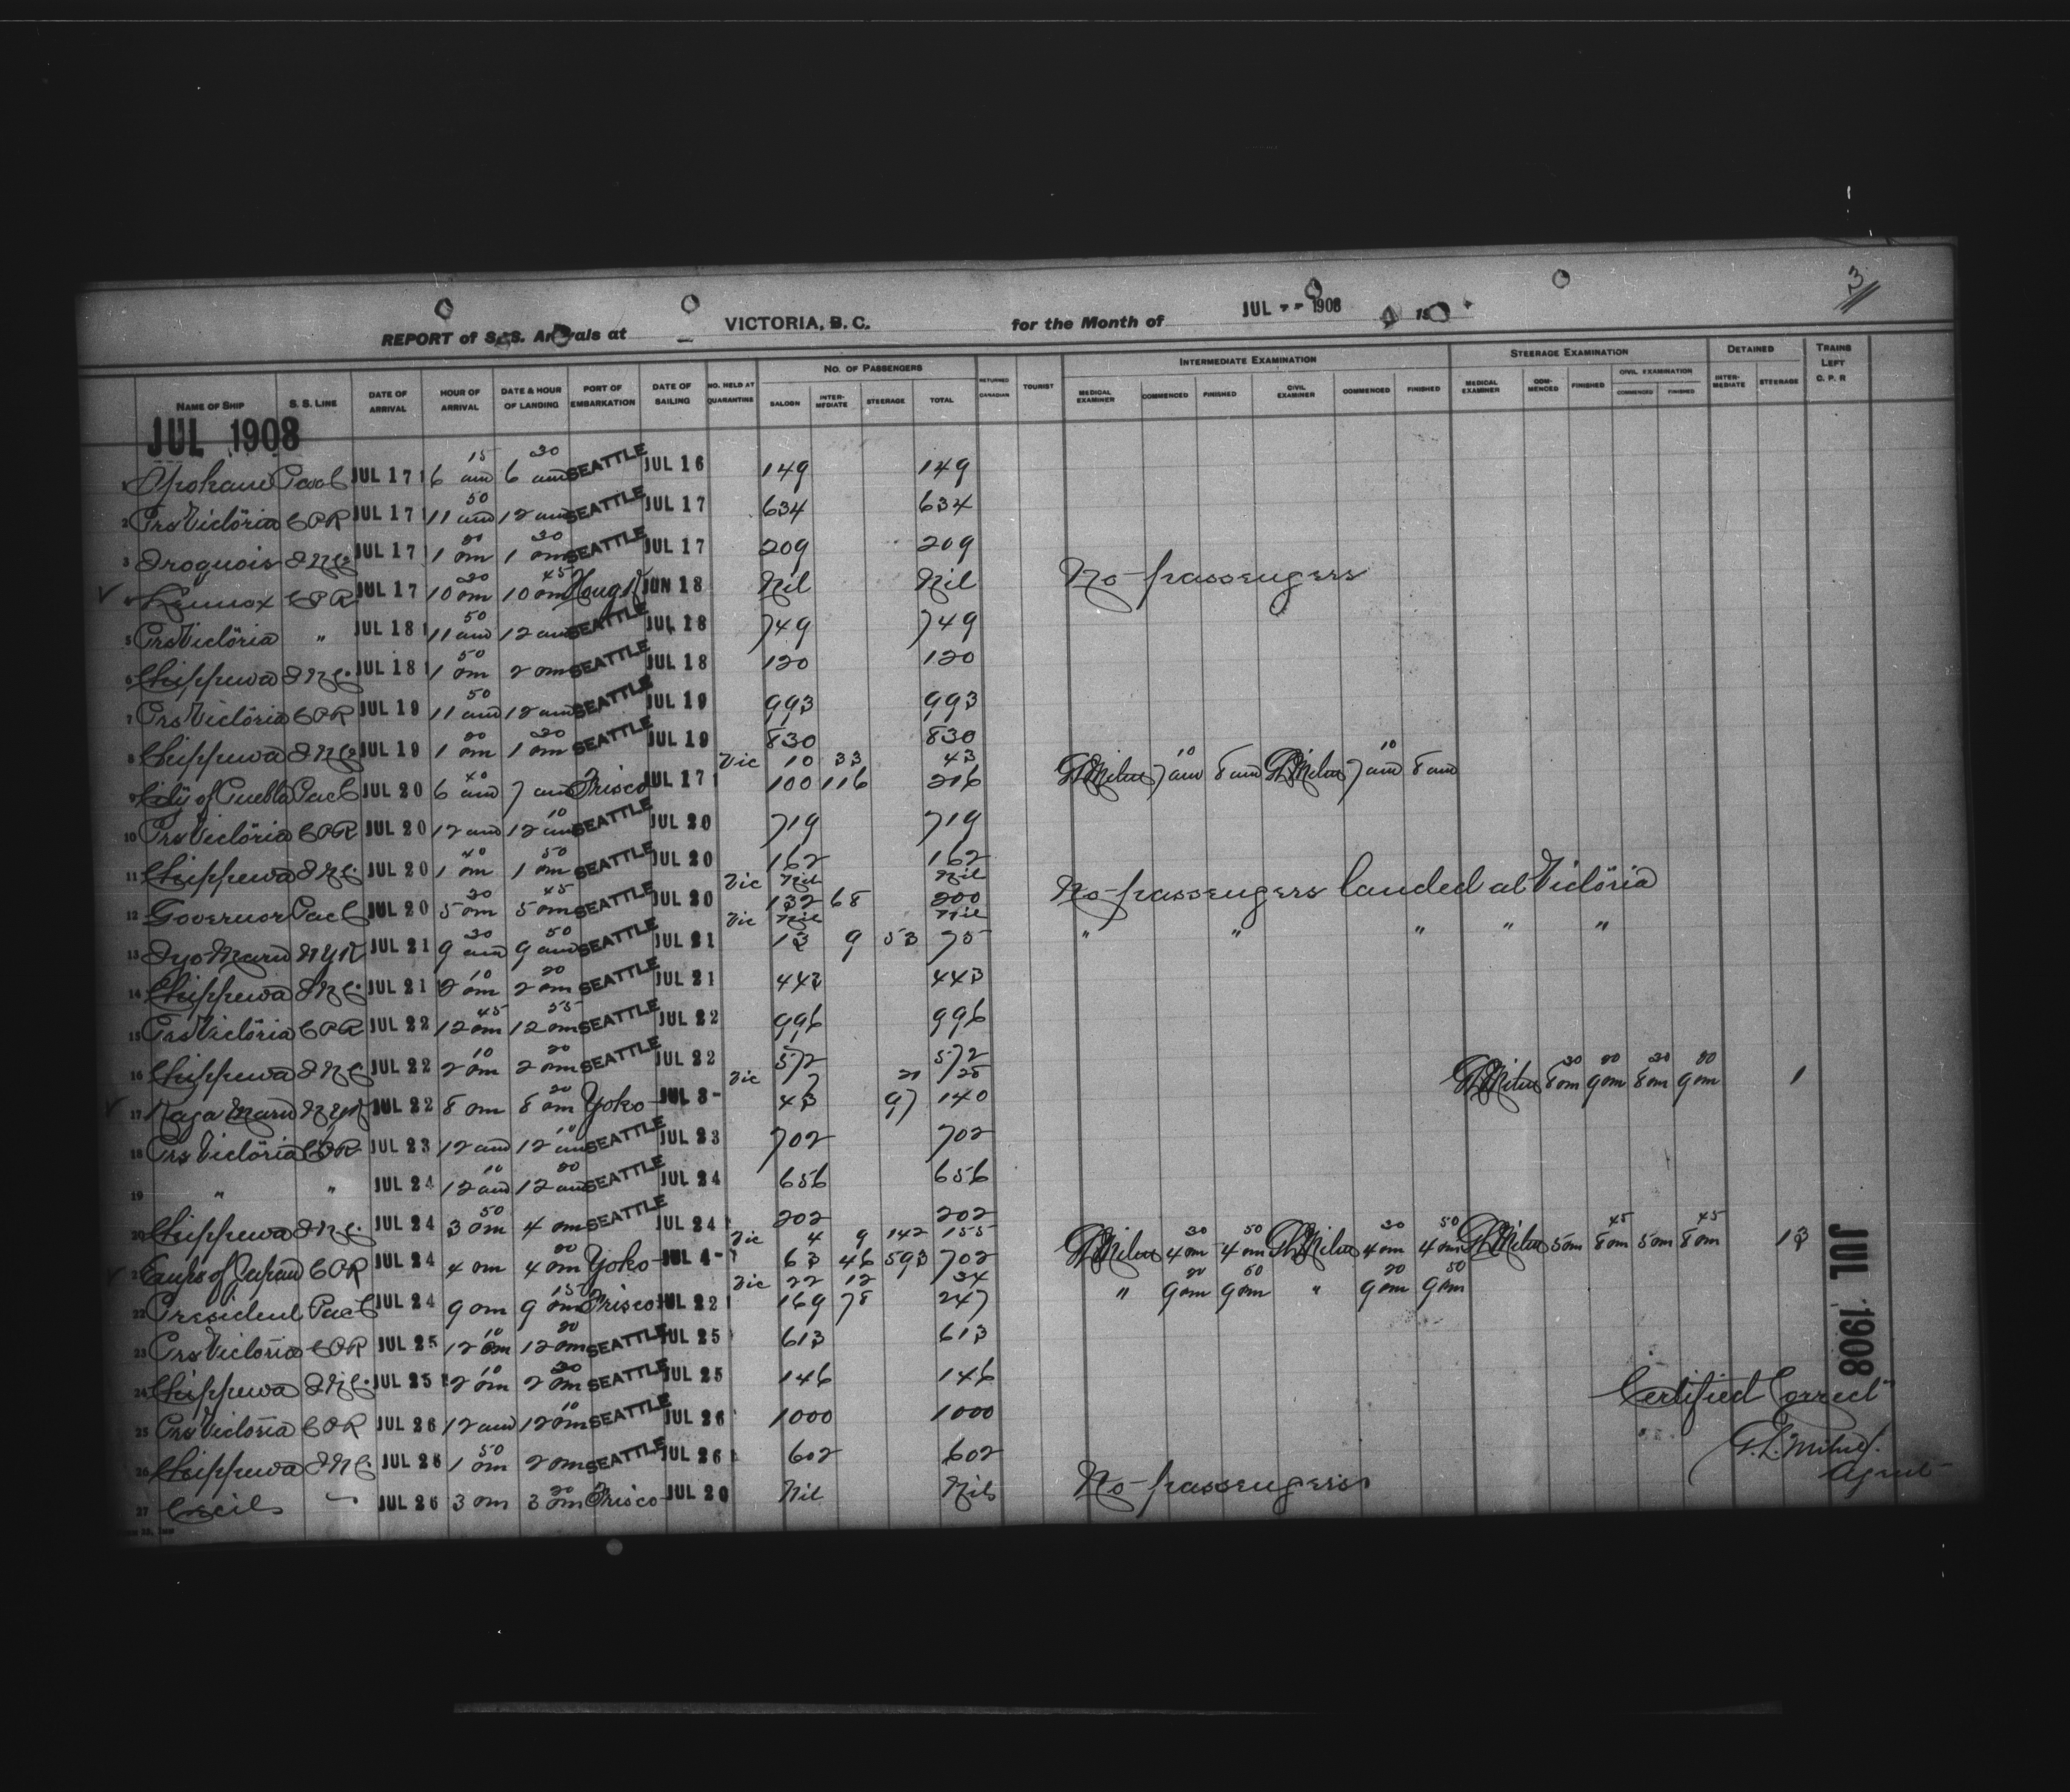 3
REPORT of S.S. Arrivals at VICTORIA, B. C. for the Month of JUL 1908
NAME OF SHIP S. S. LINE DATE OF ARRIVAL HOUR OF ARRIVAL DATE & HOUR OF LANDING PORT OF EMBARKATION DATE OF SAILING NO. HELD AT QUARANTINE NO. OF PASSENGERS SALOON INTER-MEDIATE STEERAGE TOTAL RETURNED CANADIAN TOURIST INTERMEDIATE EXAMINATION MEDICAL EXAMINER COMMENCED FINISHED CIVIL EXAMINER COMMENCED FINISHED STEERAGE EXAMINATION MEDICAL EXAMINER COM-MENCED FINISHED CIVIL EXAMINATION COMMENCED FINISHED DETAINED INTER-MEDIATE STEERAGE TRAINS LEFT C. P. R
JUL 1908
1 Spokane Pac C JUL 17 6 15 am 6 30 am SEATTLE JUL 16 149 149
2 Prs Victoria CPR JUL 17 11 50 am 12 am SEATTLE JUL 17 634 634
3 Iroquois JUL 17 1 pm 1 30 pm SEATTLE JUL 17 209 209
4 Lennox CPR JUL 17 10 30 pm 10 45 pm Hong K JUN 18 Nil Nil No passengers
5 Prs Victoria " JUL 18 11 50 am 12 am SEATTLE JUL 18 749 749
6 Chippewa JUL 18 1 50 pm 2 pm SEATTLE JUL 18 120 120
7 Prs Victoria CPR JUL 19 11 50 am 12 am SEATTLE JUL 19 993 993
8 Chippewa JUL 19 1 pm 1 30 pm SEATTLE JUL 19 830 830
Vic 10 33 43
9 City of Puebla Pac C JUL 20 6 40 am 7 am Frisco JUL 17 100 116 216 GL Milne 7 10 am 8 am GL Milne 7 10 am 8 am
10 Prs Victoria CPR JUL 20 12 am 12 10 am SEATTLE JUL 20 719 719
11 Chippewa JUL 20 1 40 pm 1 50 pm SEATTLE JUL 20 162 162
Vic Nil Nil
12 Governor Pac C JUL 20 5 30 pm 5 45 pm SEATTLE JUL 20 132 68 200 No passengers landed at Victoria
Vic Nil Nil
13 Iyo Maru NYK JUL 21 9 30 am 9 50 am SEATTLE JUL 21 13 9 53 75 " " " " "
14 Chippewa JUL 21 2 10 pm 2 20 pm SEATTLE JUL 21 443 443
15 Prs Victoria CPR JUL 22 12 45 pm 12 55 pm SEATTLE JUL 22 996 996
16 Chippewa JUL 22 2 10 pm 2 20 pm SEATTLE JUL 22 572 572
Vic 7 21 28
17 Kaga Maru NYK JUL 22 8 pm 8 20 pm Yoko JUL 3- 43 97 140 GL Milne 8 30 pm 9 20 pm 8 30 pm 9 20 pm 1
18 Prs Victoria CPR JUL 23 12 am 12 10 am SEATTLE JUL 23 702 702
19 " " JUL 24 12 10 am 12 20 am SEATTLE JUL 24 656 656
20 Chippewa JUL 24 3 50 pm 4 pm SEATTLE JUL 24 202 202
Vic 4 9 142 155
21 Emprs of Japan CPR JUL 24 4 pm 4 20 pm Yoko JUL 4- 63 46 593 702 GL Milne 4 30 pm 4 50 pm GL Milne 4 30 pm 4 50 pm GL Milne 5 pm 8 45 pm 5 pm 8 45 pm 13
Vic 22 12 34
22 President Pac C JUL 24 9 pm 9 15 pm Frisco JUL 22 169 78 247 " 9 20 pm 9 50 pm " 9 20 pm 9 50 pm
23 Prs Victoria CPR JUL 25 12 10 pm 12 20 pm SEATTLE JUL 25 613 613
24 Chippewa JUL 25 2 10 pm 2 20 pm SEATTLE JUL 25 146 146
25 Prs Victoria CPR JUL 26 12 am 12 10 pm SEATTLE JUL 26 1000 1000
26 Chippewa JUL 26 1 50 pm 2 pm SEATTLE JUL 26 602 602
27 Cecil JUL 26 3 pm 3 20 pm Frisco JUL 20 Nil Nil No passengers
JUL 1908
Certified Correct
G. L. Milne
Agent